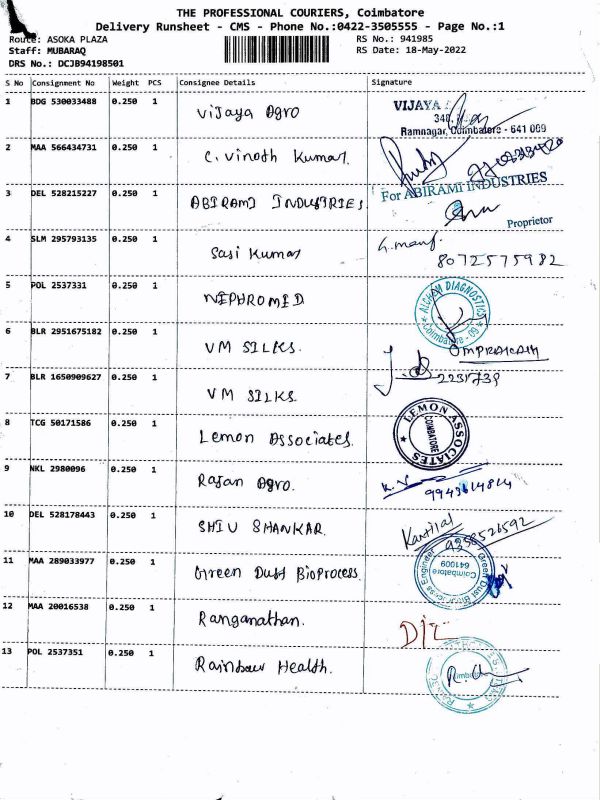 THE PROFESSIONAL COURIERS, Coimbatore
Delivery Runsheet - CMS - Phone No.:0422-3505555 - Page No.:1
Route: ASOKA PLAZA
RS No.: 941985
Staff: MUBARAQ
RS Date: 18-May-2022
DRS No.: DCJB94198501
S No Consignment No Weight PCS Consignee Details Signature
1 BDG 530033488 0.250 1 Vijaya Agro
VIJAYA
340,
Ramnagar, Coimbatore - 641 009
2 MAA 566434731 0.250 1 C. Vinoth Kumar.
3 DEL 528215227 0.250 1 ABIRAMI INDUSTRIES
For ABIRAMI INDUSTRIES
Proprietor
4 SLM 295793135 0.250 1 Sasi Kumar
8072575982
5 POL 2537331 0.250 1 NIPHROMED
ALCHEM DIAGNOSTICS
Coimbatore - 09
6 BLR 2951675182 0.250 1 VM SILKS.
OMPRAKASH
7 BLR 1650909627 0.250 1 VM SILKS
2231739
8 TCG 50171586 0.250 1 Lemon Associates.
LEMON ASSOCIATES
COIMBATORE
9 NKL 2980096 0.250 1 Rajan Agro.
K. V
9943614814
10 DEL 528178443 0.250 1 SHIV SHANKAR.
Kantilal
9358526592
11 MAA 289033977 0.250 1 Green Dust Bioprocess.
Coimbatore
641009
12 MAA 20016538 0.250 1 Ranganathan.
13 POL 2537351 0.250 1 Rainbow Health.